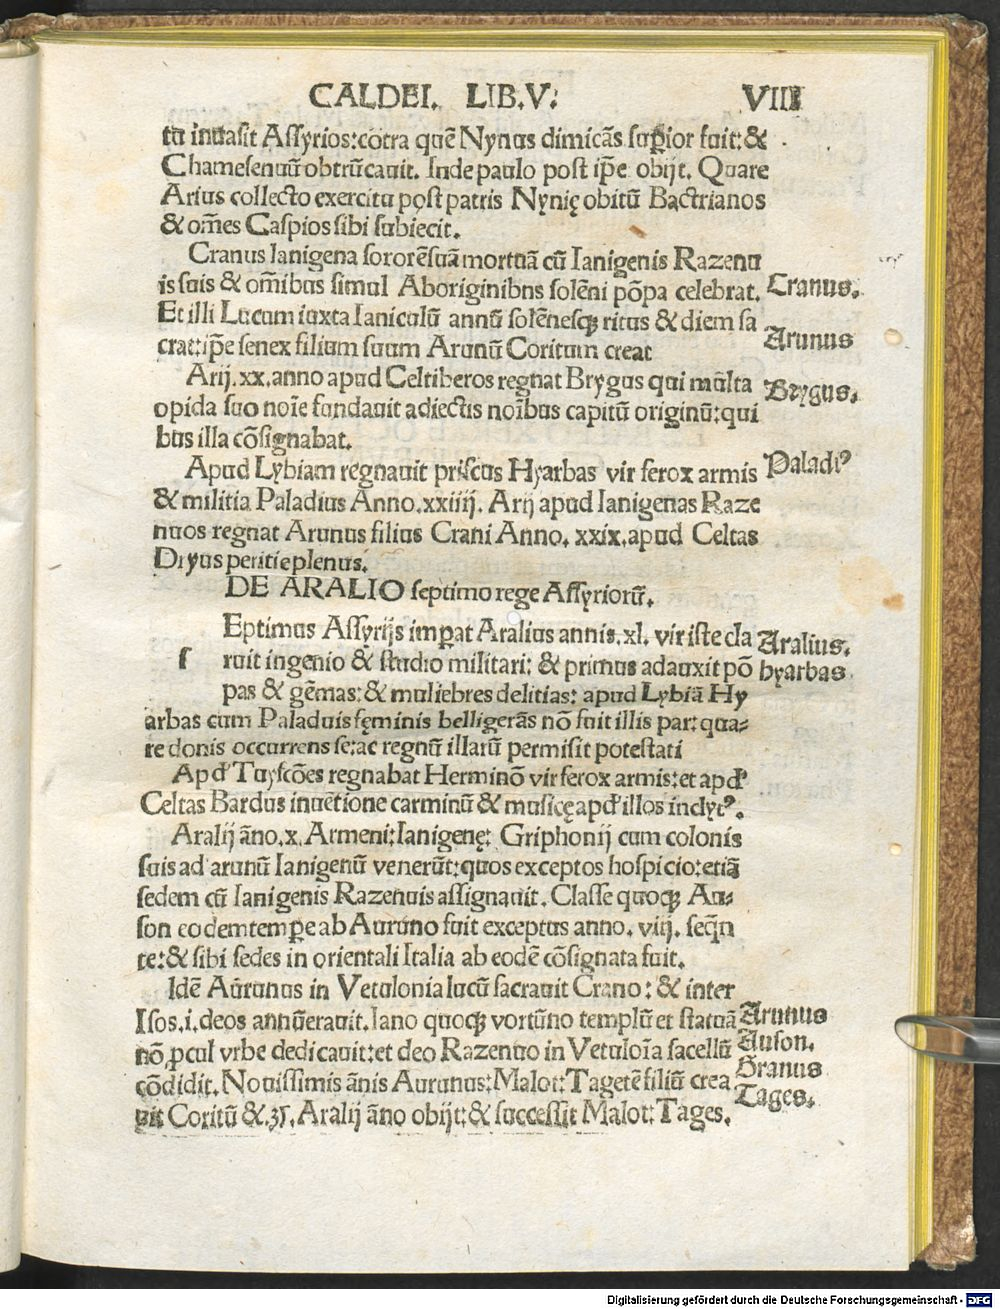 CALDEI. LIB.V. VIII
tu inuasit Assyrios:cōtra quē Nynus dimicās sup̱ior fuit:&
Chamesenuū obtrūcauit. Inde paulo post ip̄e obijt. Quare
Arius collecto exercitu post patris Nynię obitū Bactrianos
& om̄es Caspios sibi subiecit.
Cranus Ianigena sororē suā mortuā cū Ianigenis Razenu
is suis & om̄ibus simul Aboriginibns solēni pōpa celebrat. Cranus.
Et illi Lucum iuxta Ianiculū annū solēnesqꝫ ritus & diem sa
crat:ip̄e senex filium suum Arunū Coritum creat Arunus
Arij.xx.anno apud Celtiberos regnat Brygus qui mūlta Brygus.
opida suo noīe fundauit adiectis noībus capitū originū:qui
bus illa cōsignabat.
Apud Lybiam regnauit priscus Hyarbas vir ferox armis Paladiꝰ
& militia Paladius Anno.xxiiij. Arij apud Ianigenas Raze
nuos regnat Arunus filius Crani Anno. xxix.apud Celtas
Dryus peritię plenus.
DE ARALIO septimo rege Assyriorū.
Eptimus Assyrijs imp̱at Aralius annis.xl. vir iste cla Aralius.
f ruit ingenio & studio militari: & primus adauxit pō hyarbas
pas & gēmas:& muliebres delitias: apud Lybiā Hy
arbas cum Paladuis fęminis belligerās nō fuit illis par: qua⸗
re donis occurrens se:ac regnū illarū permisit potestati
Apđ Tuyscōes regnabat Herminō vir ferox armis:et apđ
Celtas Bardus inuētione carminū & musicę apđ illos inclytꝰ.
Aralij āno.x. Armeni:Ianigenę: Griphonij cum colonis
suis ad arunū Ianigenū venerūt:quos exceptos hospicio:etiā
sedem cū Ianigenis Razenuis assignauit. Classe quoqꝫ Au⸗
son eodem temp̱e ab Auruno fuit exceptus anno. viij. seq̄n
te:& sibi sedes in orientali Italia ab eodē cōsignata fuit.
Idē Aurunus in Vetulonia lucū sacrauit Crano: & inter
Isos.i.deos annūerauit.Iano quoqꝫ vortūno templū et statuā Arunus
nō ꝓcul vrbe dedicauit:et deo Razenuo in Vetuloīa sacellū Auson.
cōdidit. Nouissimis ānis Aurunus:Malot:Tagetē filiū crea Granus
uit Coritū &.35. Aralij āno obijt:& successit Malot:Tages. Tages.
Digitalisierung gefördert durch die Deutsche Forschungsgemeinschaft - DFG